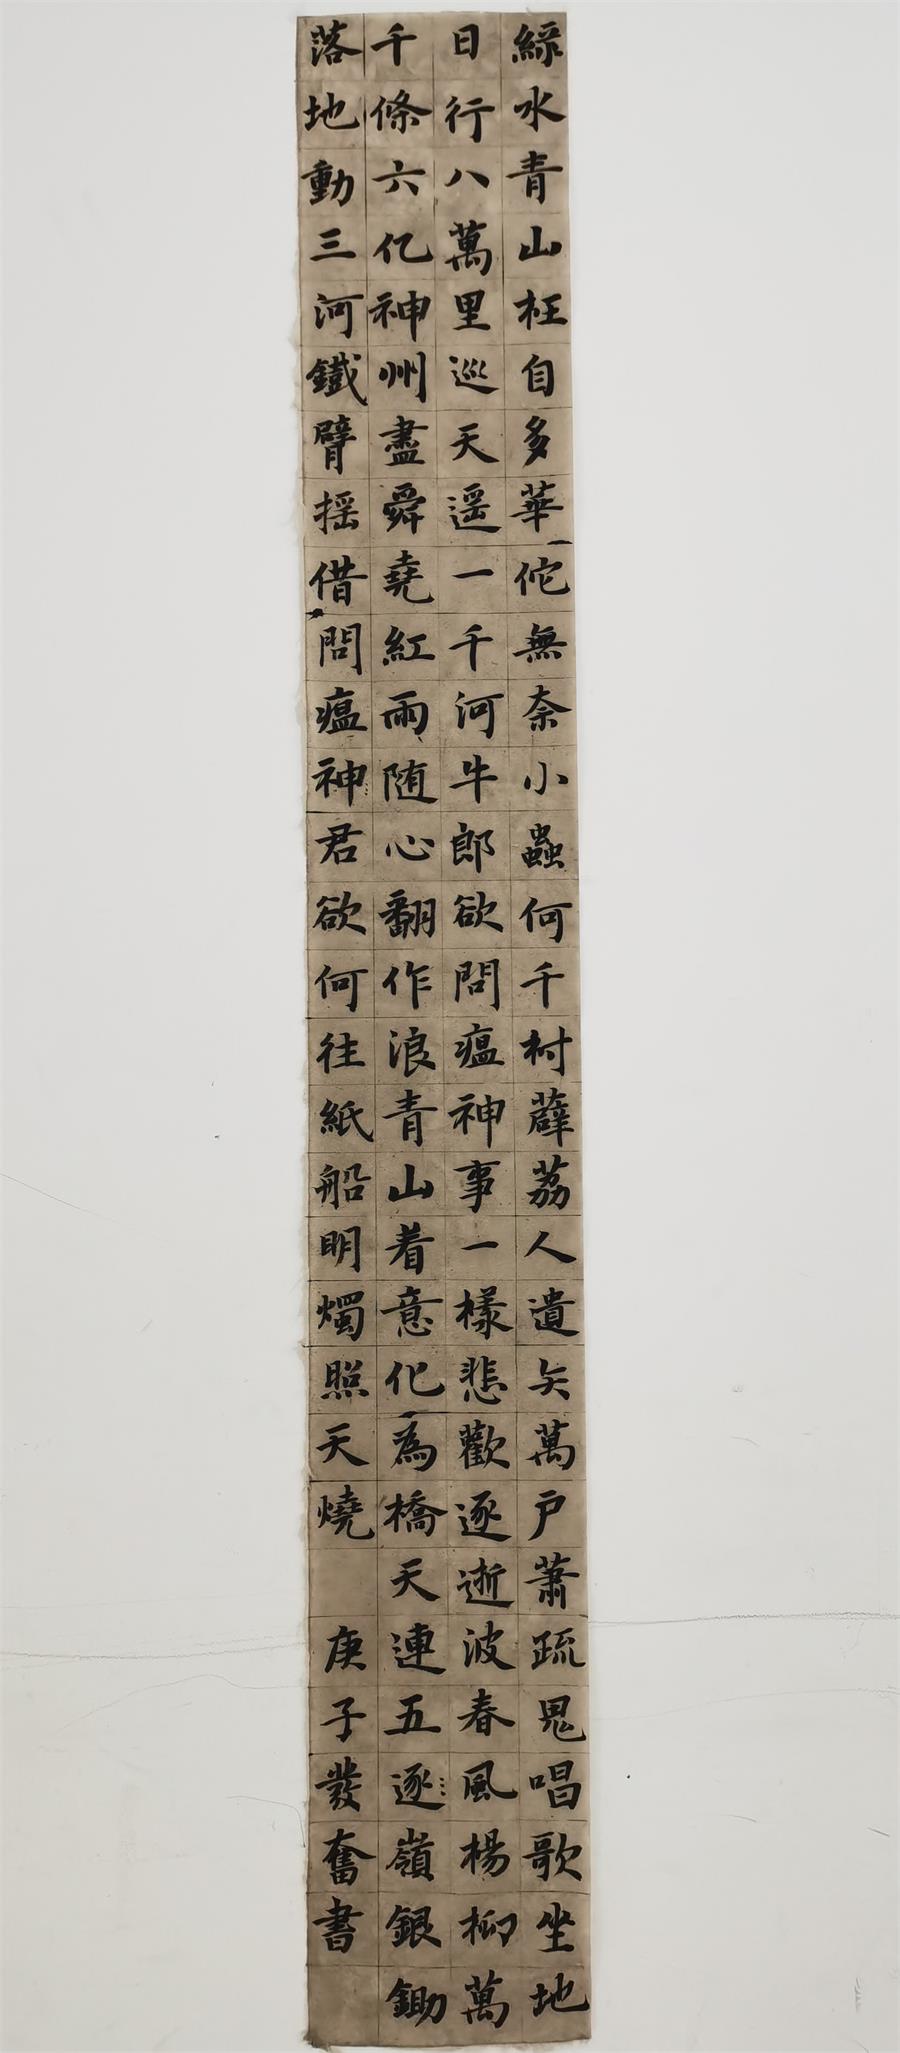 緑水青山枉自多華佗無奈小蟲何千村薜荔人遺矢萬户蕭疏鬼唱歌坐地
日行八萬里巡天遥一千河牛郎欲問瘟神事一樣悲歡逐逝波春風楊柳萬
千條六亿神州盡舜堯紅雨随心翻作浪青山着意化為橋天連五逐嶺銀鋤
落地動三河鐵臂摇借問瘟神君欲何往紙船明燭照天燒 庚子發奮書